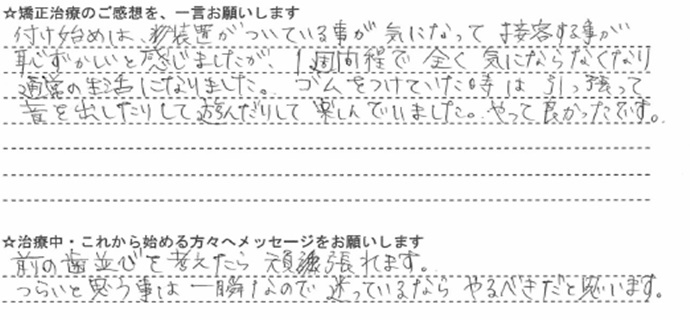 ☆矯正治療のご感想を、一言お願いします
付け始めは、装置がついている事が気になって接客する事が
恥ずかしいと感じましたが、1週間程で全く気にならなくなり
通常の生活になりました。ゴムをつけていた時は引っ張って
音を出したりして遊んだりして楽しんでいました。やって良かったです。
☆治療中・これから始める方々へメッセージをお願いします
前の歯並びを考えたら頑張れます。
つらいと思う事は一瞬なので迷っているならやるべきだと思います。